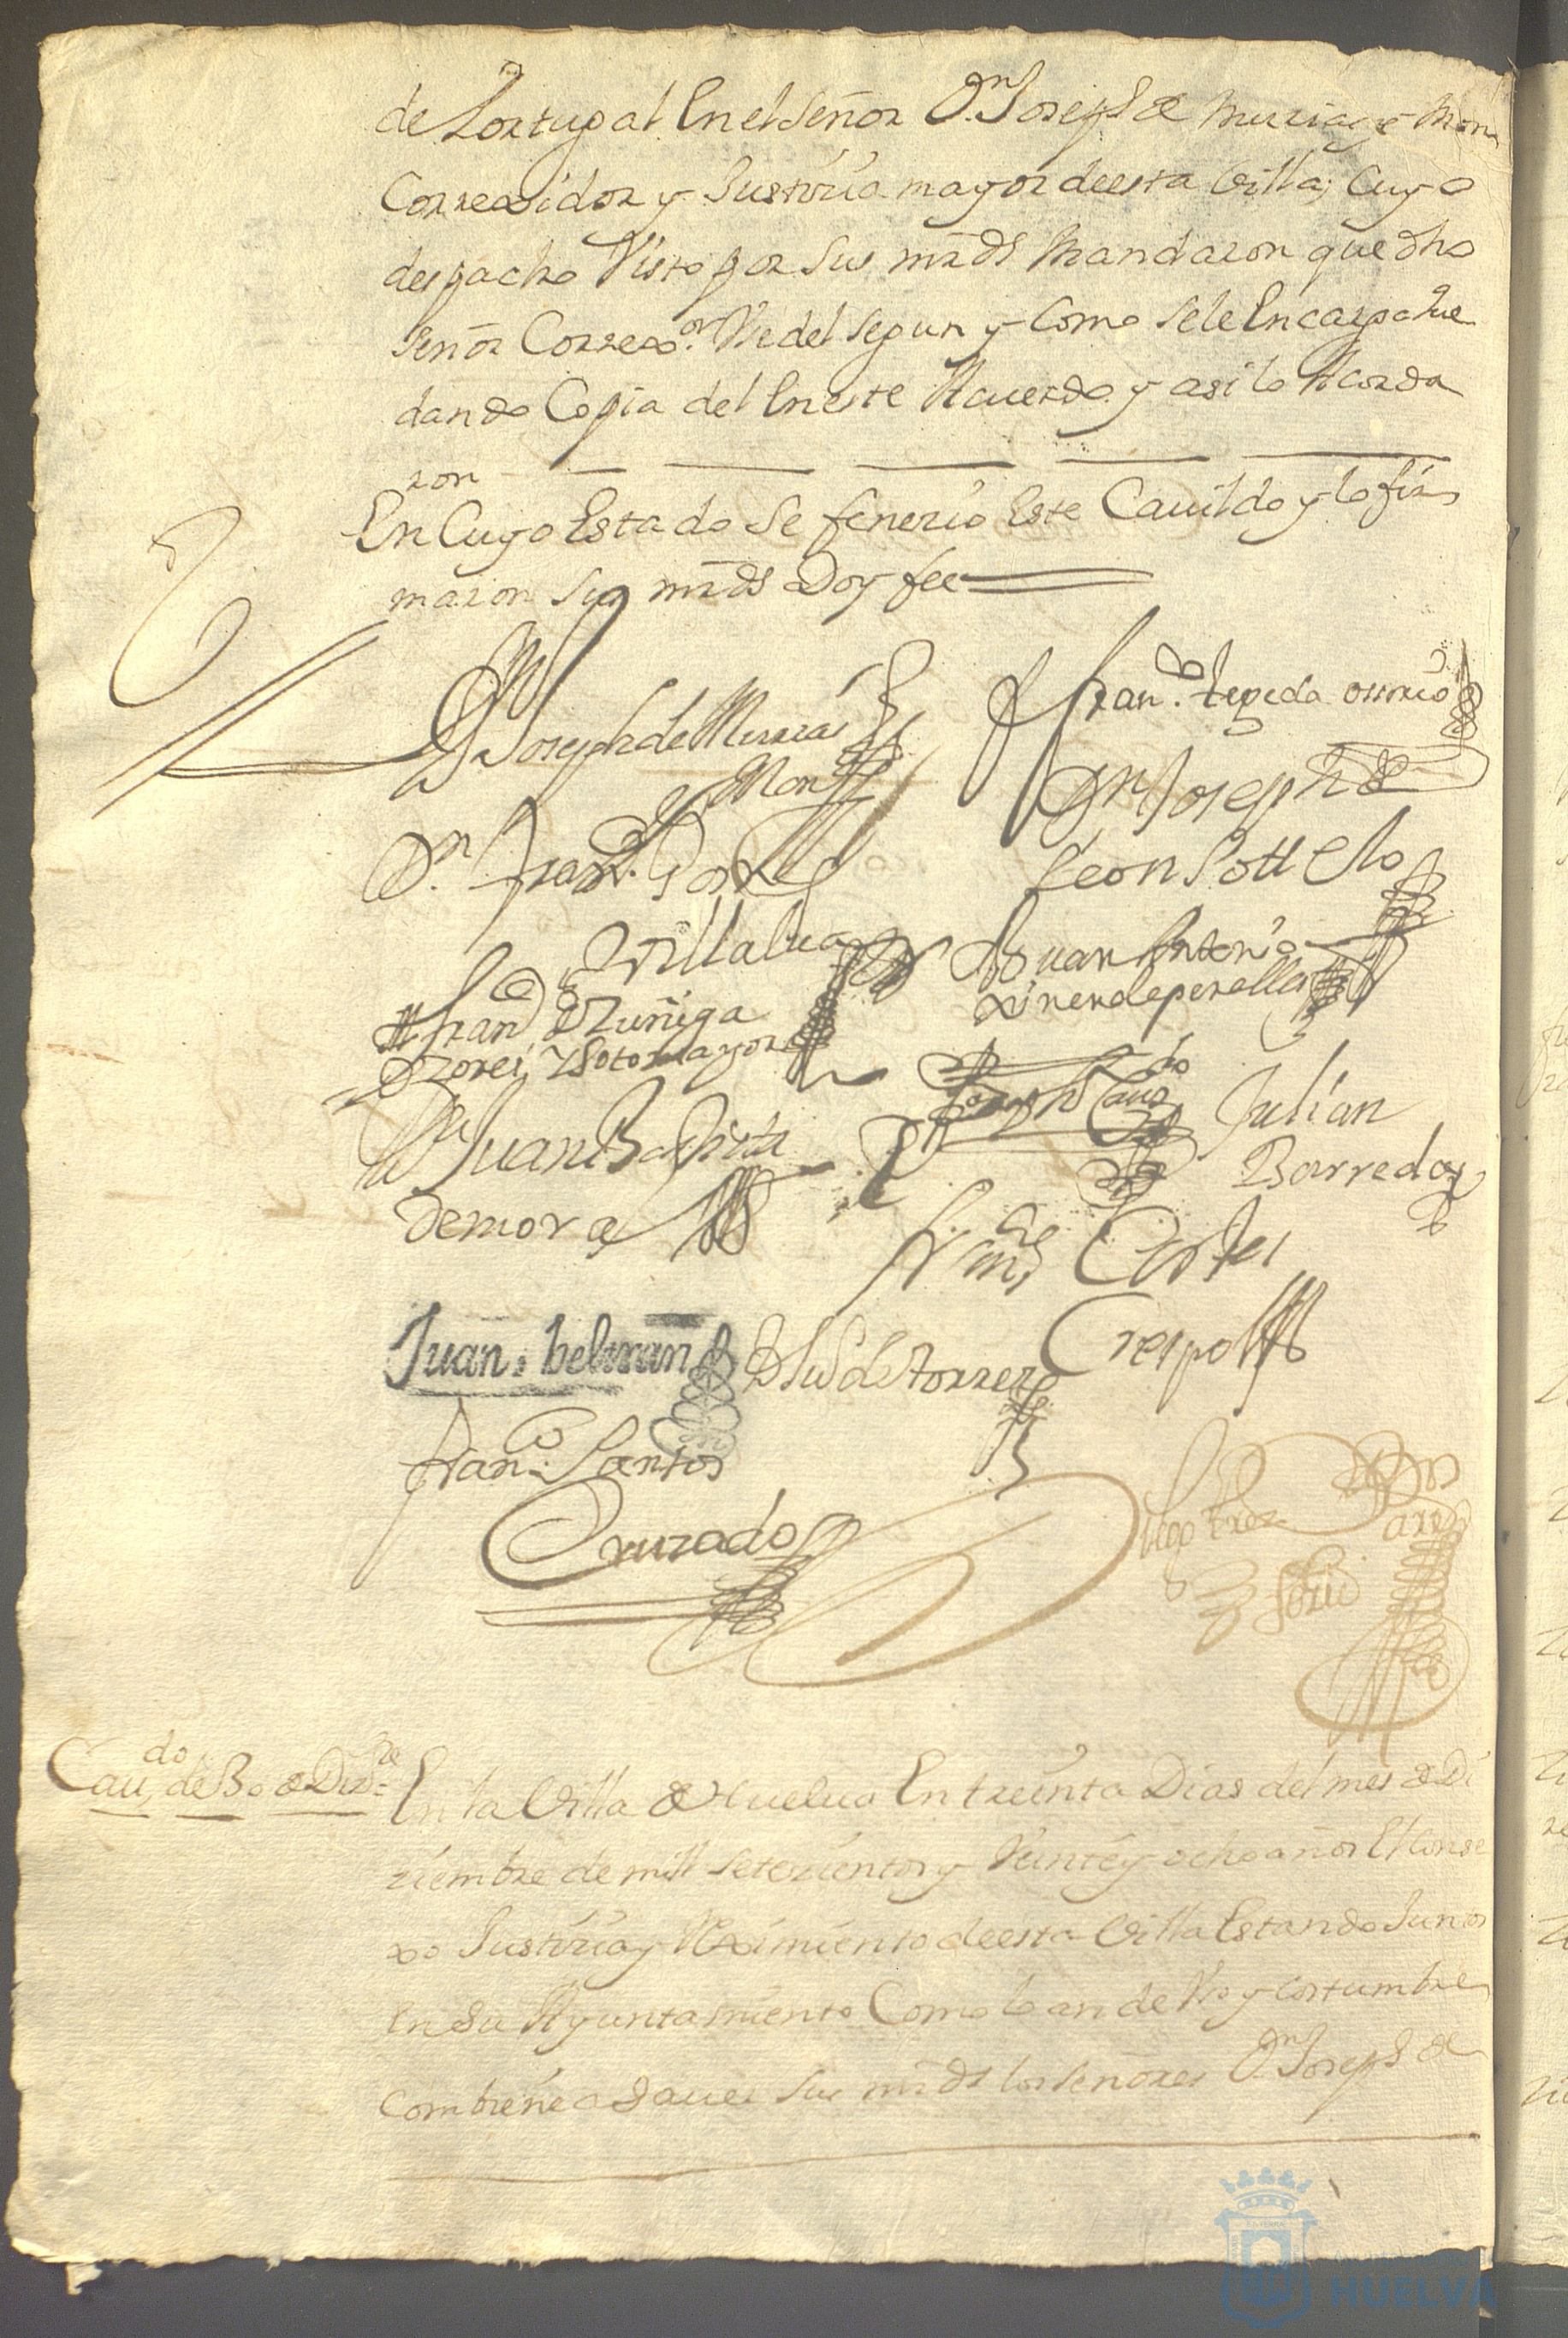 de Portugal En el Señor Dn. Joseph de Murcia y Mon
Correxidor y Justiςia mayor deesta Villa; Cuyo
despacho Visto por Sus mrds Mandaron que dho
Señor Correxor. Vse del segun y Como se le Encarga Que
dando Copia del En este Acuerdo y asi lo Acorda
ron
En Cuyo Estado Se feneςio Este Cauildo y lo fir
maron Sus mrds Doy fee
Dn Joseph de Murςia
y Mon
Franco. Zepeda ossorio
Dn Joseph de
Leon Sottelo
Dn. Franco.
Villalua
Juan Antonio
Ximenez de perella
Franco de Zuñiga
y Sotomayor
Joseph Cauo
Julian
Barreda
Dn Juan Baptista
de mora
Franco Cortes
Crespo
Juan, beltran
Luis de torres
Franco. Santos
Cruzado
Diego
Caudo, de 30 de Dizre
En la Villa de Huelua En treinta Dias del mes de Di
ziembre de mill Seteςientos y Veinte y ocho años El Conse
xo Justiςia y Reximiento deesta Villa Estando Juntos
En Su Ayuntamiento Como lo an de Vso y Costumbre
Combiene a Sauer Sus mrds los Señores Dn Joseph de
HUELVA